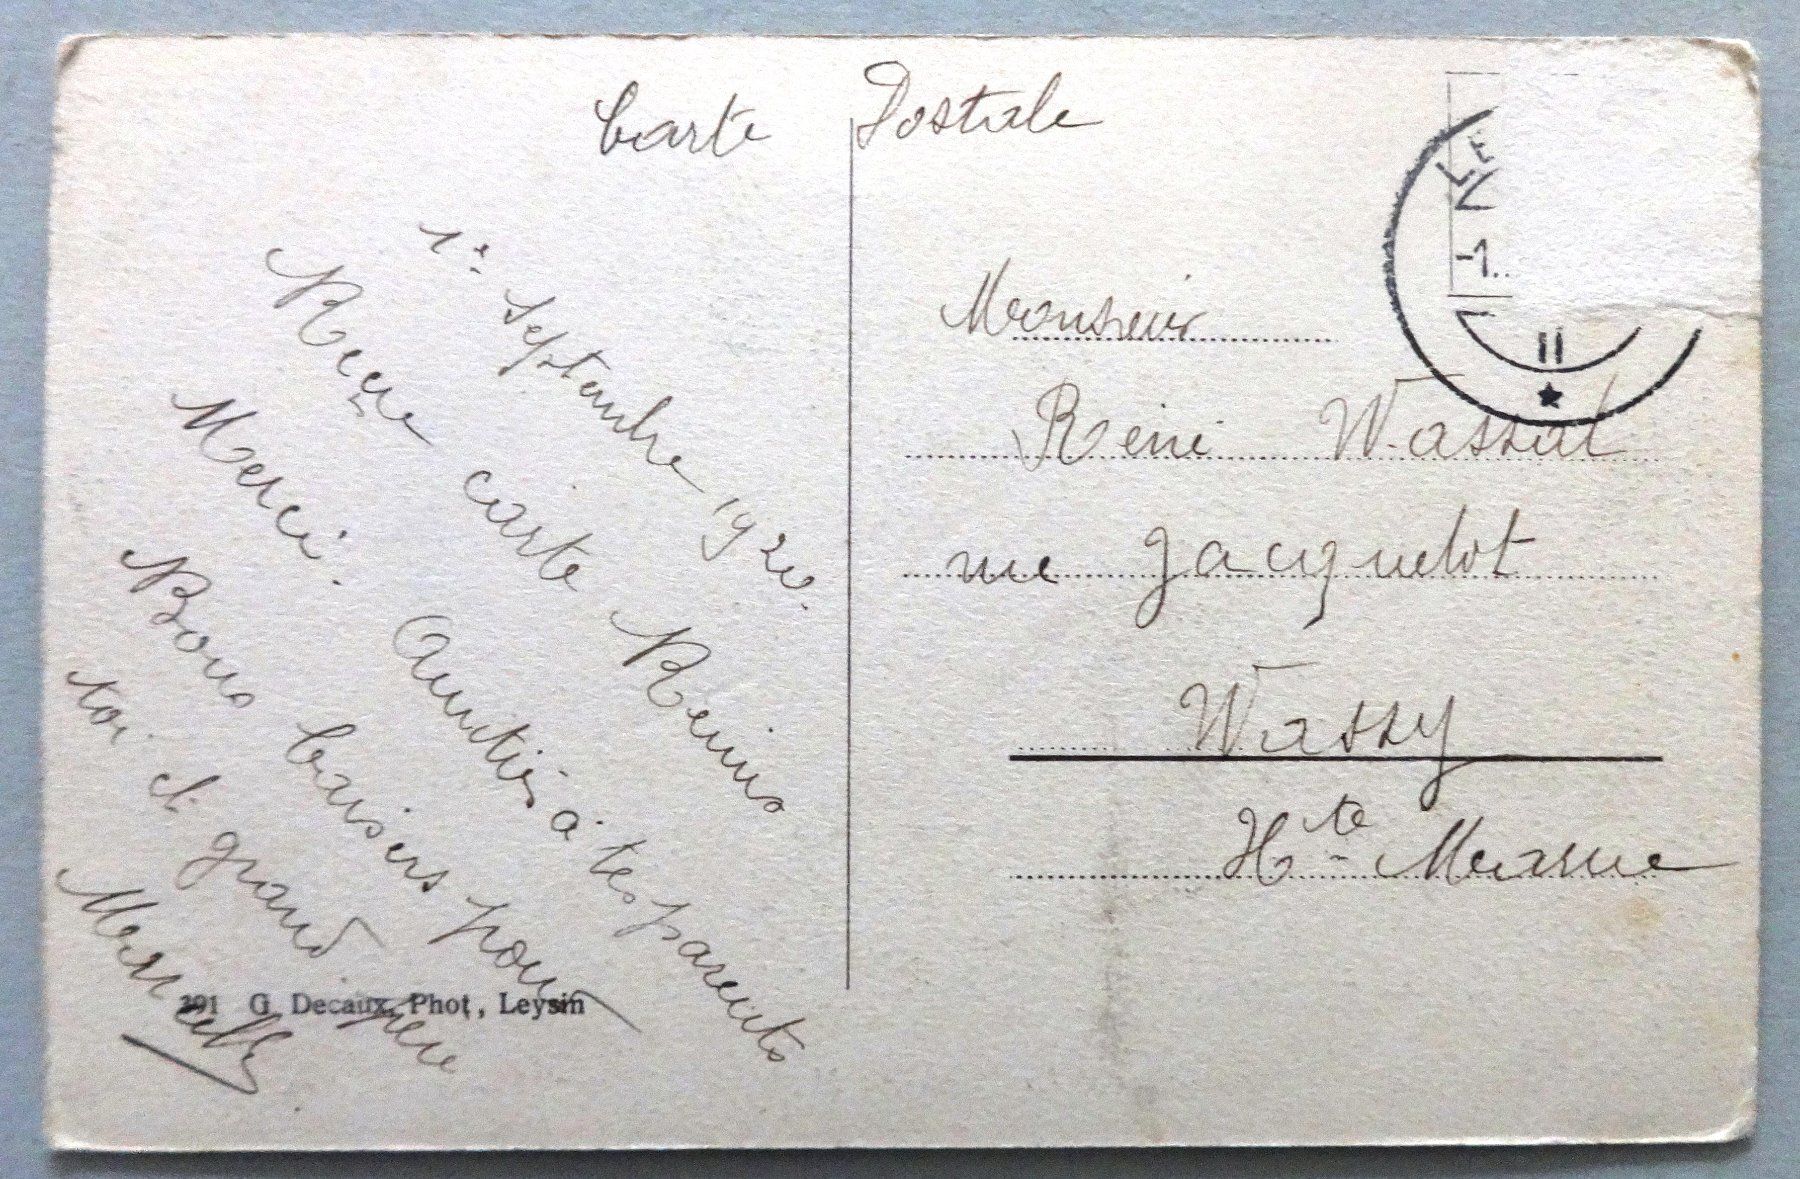 Carte Postale
1e Septembre 1920.
Reçu carte Reims
Merci. Amitiés à tes parents
Bons baisers pour
toi et grand père
Marcelle
291 G. Decaux, Phot, Leysin
LE
-1..
II
Monsieur
René Wassal
rue Jacquelot
Wassy
Hte Marne